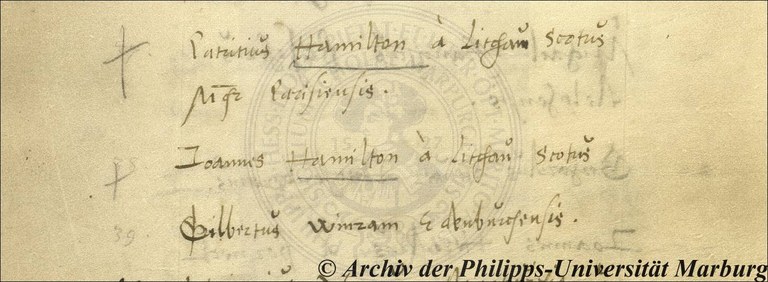 Patritius Hamilton à Litgau Scotus
Mgr Parisiensis.
Ioannes Hamilton à Litgau Scotus
39. Gilbertus Winram Edenburgensis.
© Archiv der Philipps-Universität Marburg